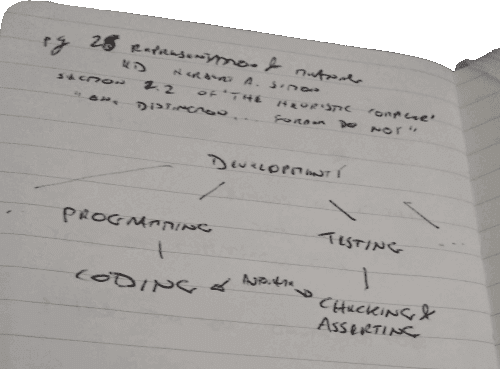 pg 28 REPRESENTATION OF
HERBERT A. SIMON
SECTION 2.2 OF "THE HEURISTIC COMPILER"
"ONE DISTINCTION ... FORMER DO NOT"
DEVELOPMENT
PROGMATTING
TESTING
...
CODING
CHECKING &
ASSERTING